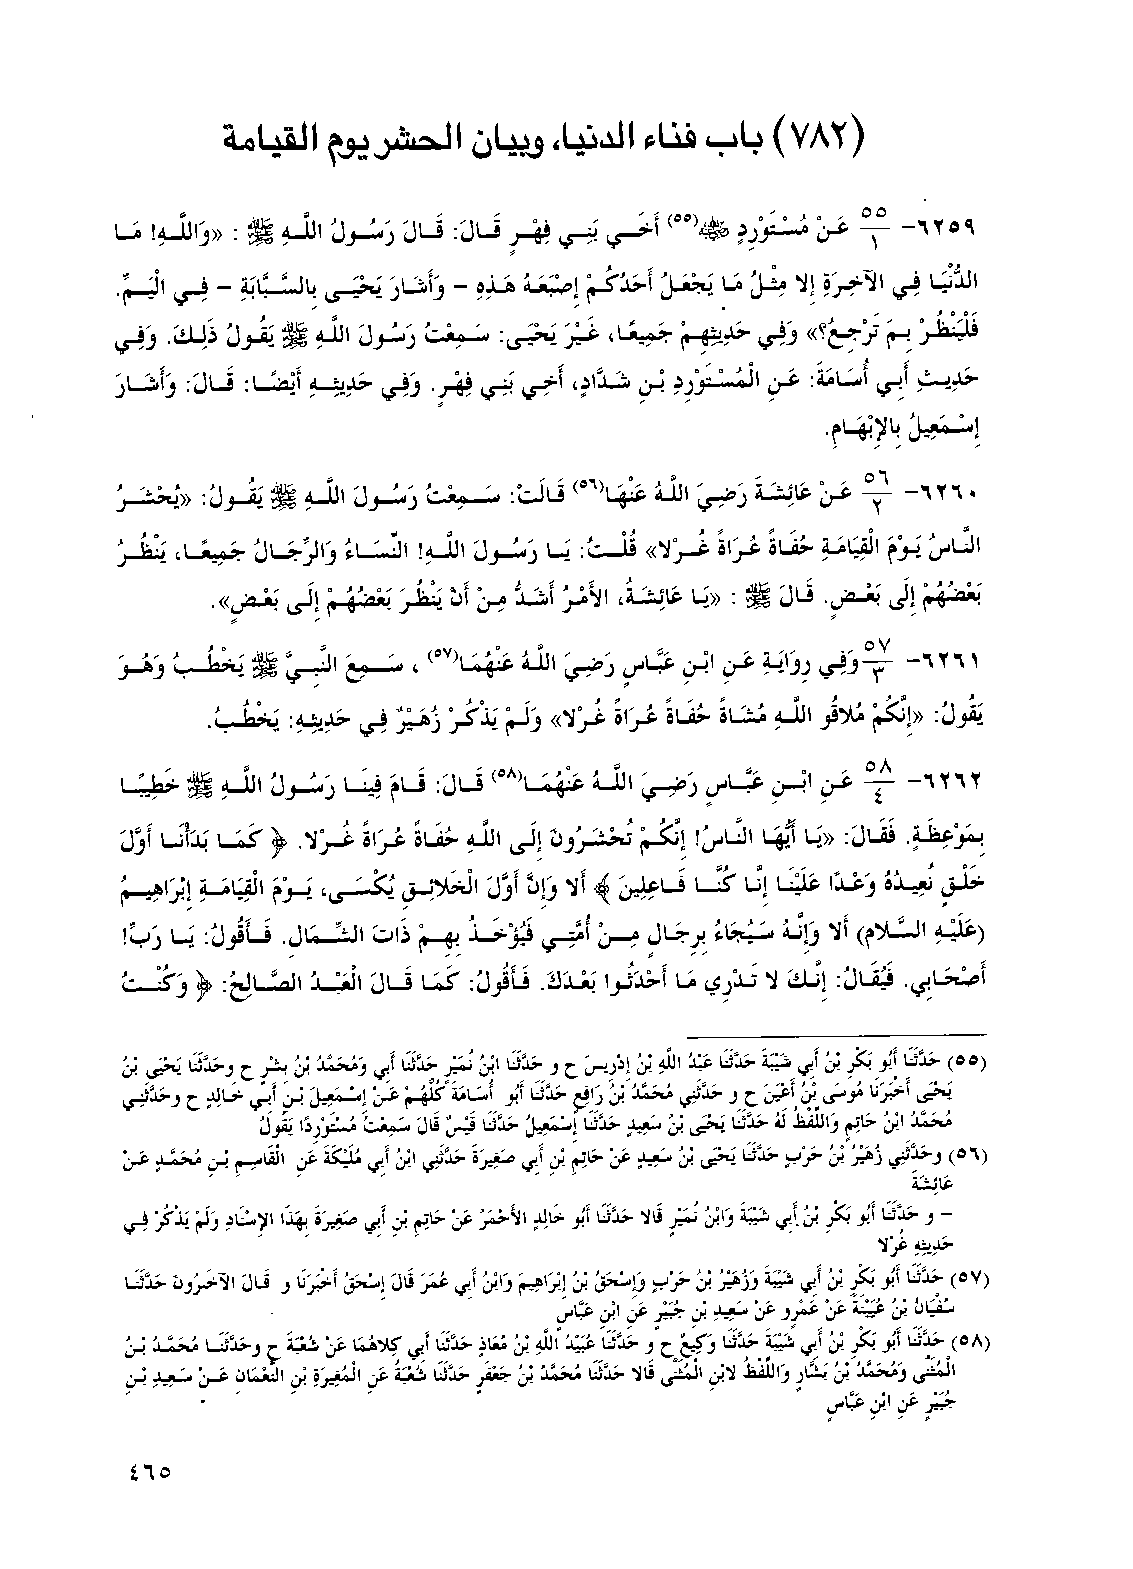 (٧٨٢) باب فناء الدنيا، وبيان الحشر يوم القيامة
٦٢٥٩- ٥٥/١ عَنْ مُسْتَوْرِدٍ ﷺ(٥٥) أَخِي بَنِي فِهْرٍ قَالَ: قَالَ رَسُولُ اللَّهِ ﷺ : «وَاللَّهِ! مَا
الدُّنْيَا فِي الآخِرَةِ إِلا مِثْلُ مَا يَجْعَلُ أَحَدُكُمْ إِصْبَعَهُ هَذِهِ - وَأَشَارَ يَحْيَى بِالسَّبَّابَةِ - فِي الْيَمِّ.
فَلْيَنْظُرْ بِمَ تَرْجِعُ؟» وَفِي حَدِيثِهِمْ جَمِيعًا، غَيْرَ يَحْيَى: سَمِعْتُ رَسُولَ اللَّهِ ﷺ يَقُولُ ذَلِكَ. وَفِي
حَدِيثِ أَبِي أُسَامَةَ: عَنِ الْمُسْتَوْرِدِ بْنِ شَدَّادٍ، أَخِي بَنِي فِهْرٍ. وَفِي حَدِيثِهِ أَيْضًا: قَالَ: وَأَشَارَ
إِسْمَعِيلُ بِالإِبْهَامِ.
٦٢٦٠- ٥٦/٢ عَنْ عَائِشَةَ رَضِيَ اللَّهُ عَنْهَا(٥٦) قَالَتْ: سَمِعْتُ رَسُولَ اللَّهِ ﷺ يَقُولُ: «يُحْشَرُ
النَّاسُ يَوْمَ الْقِيَامَةِ حُفَاةً عُرَاةً غُرْلا» قُلْتُ: يَا رَسُولَ اللَّهِ! النِّسَاءُ وَالرِّجَالُ جَمِيعًا، يَنْظُرُ
بَعْضُهُمْ إِلَى بَعْضٍ. قَالَ ﷺ : «يَا عَائِشَةُ، الأَمْرُ أَشَدُّ مِنْ أَنْ يَنْظُرَ بَعْضُهُمْ إِلَى بَعْضٍ».
٦٢٦١- ٥٧/٣ وَفِي رِوَايَةٍ عَنِ ابْنِ عَبَّاسٍ رَضِيَ اللَّهُ عَنْهُمَا(٥٧) ، سَمِعَ النَّبِيَّ ﷺ يَخْطُبُ وَهُوَ
يَقُولُ: «إِنَّكُمْ مُلاقُو اللَّهِ مُشَاةً حُفَاةً عُرَاةً غُرْلا» وَلَمْ يَذْكُرْ زُهَيْرٌ فِي حَدِيثِهِ: يَخْطُبُ.
٦٢٦٢- ٥٨/٤ عَنِ ابْنِ عَبَّاسٍ رَضِيَ اللَّهُ عَنْهُمَا(٥٨) قَالَ: قَامَ فِينَا رَسُولُ اللَّهِ ﷺ خَطِيبًا
بِمَوْعِظَةٍ. فَقَالَ: «يَا أَيُّهَا النَّاسُ! إِنَّكُمْ تُحْشَرُونَ إِلَى اللَّهِ حُفَاةً عُرَاةً غُرْلا. ﴿ كَمَا بَدَأْنَا أَوَّلَ
خَلْقٍ نُعِيدُهُ وَعْدًا عَلَيْنَا إِنَّا كُنَّا فَاعِلِينَ ﴾ أَلا وَإِنَّ أَوَّلَ الْخَلائِقِ يُكْسَى، يَوْمَ الْقِيَامَةِ إِبْرَاهِيمُ
(عَلَيْهِ السَّلام) أَلا وَإِنَّهُ سَيُجَاءُ بِرِجَالٍ مِنْ أُمَّتِي فَيُؤْخَذُ بِهِمْ ذَاتَ الشِّمَالِ. فَأَقُولُ: يَا رَبِّ!
أَصْحَابِي. فَيُقَالُ: إِنَّكَ لا تَدْرِي مَا أَحْدَثُوا بَعْدَكَ. فَأَقُولُ: كَمَا قَالَ الْعَبْدُ الصَّالِحُ: ﴿ وَكُنْتُ
(٥٥) حَدَّثَنَا أَبُو بَكْرِ بْنُ أَبِي شَيْبَةَ حَدَّثَنَا عَبْدُ اللَّهِ بْنُ إِدْرِيسَ ح و حَدَّثَنَا ابْنُ نُمَيْرٍ حَدَّثَنَا أَبِي وَمُحَمَّدُ بْنُ بِشْرٍ ح وحَدَّثَنَا يَحْيَى بْنُ
يَحْيَى أَخْبَرَنَا مُوسَى بْنُ أَعْيَنَ ح و حَدَّثَنِي مُحَمَّدُ بْنُ رَافِعٍ حَدَّثَنَا أَبُو أُسَامَةَ كُلُّهُمْ عَنْ إِسْمَعِيلَ بْنِ أَبِي خَالِدٍ ح وحَدَّثَنِي
مُحَمَّدُ ابْنُ حَاتِمٍ وَاللَّفْظُ لَهُ حَدَّثَنَا يَحْيَى بْنُ سَعِيدٍ حَدَّثَنَا إِسْمَعِيلُ حَدَّثَنَا قَيْسٌ قَالَ سَمِعْتُ مُسْتَوْرِدًا يَقُولُ
(٥٦) وحَدَّثَنِي زُهَيْرُ بْنُ حَرْبٍ حَدَّثَنَا يَحْيَى بْنُ سَعِيدٍ عَنْ حَاتِمِ بْنِ أَبِي صَغِيرَةَ حَدَّثَنِي ابْنُ أَبِي مُلَيْكَةَ عَنِ الْقَاسِمِ بْنِ مُحَمَّدٍ عَنْ
عَائِشَةَ
- و حَدَّثَنَا أَبُو بَكْرِ بْنُ أَبِي شَيْبَةَ وَابْنُ نُمَيْرٍ قَالا حَدَّثَنَا أَبُو خَالِدٍ الأَحْمَرُ عَنْ حَاتِمِ بْنِ أَبِي صَغِيرَةَ بِهَذَا الإِسْنَادِ وَلَمْ يَذْكُرْ فِي
حَدِيثِهِ غُرْلا
(٥٧) حَدَّثَنَا أَبُو بَكْرِ بْنُ أَبِي شَيْبَةَ وَزُهَيْرُ بْنُ حَرْبٍ وَإِسْحَقُ بْنُ إِبْرَاهِيمَ وَابْنُ أَبِي عُمَرَ قَالَ إِسْحَقُ أَخْبَرَنَا و قَالَ الآخَرُونَ حَدَّثَنَا
سُفْيَانُ بْنُ عُيَيْنَةَ عَنْ عَمْرٍو عَنْ سَعِيدِ بْنِ جُبَيْرٍ عَنِ ابْنِ عَبَّاسٍ
(٥٨) حَدَّثَنَا أَبُو بَكْرِ بْنُ أَبِي شَيْبَةَ حَدَّثَنَا وَكِيعٌ ح و حَدَّثَنَا عُبَيْدُ اللَّهِ بْنُ مُعَاذٍ حَدَّثَنَا أَبِي كِلاهُمَا عَنْ شُعْبَةَ ح وحَدَّثَنَا مُحَمَّدُ بْنُ
الْمُثَنَّى وَمُحَمَّدُ بْنُ بَشَّارٍ وَاللَّفْظُ لابْنِ الْمُثَنَّى قَالا حَدَّثَنَا مُحَمَّدُ بْنُ جَعْفَرٍ حَدَّثَنَا شُعْبَةُ عَنِ الْمُغِيرَةِ بْنِ النُّعْمَانِ عَنْ سَعِيدِ بْنِ
جُبَيْرٍ عَنِ ابْنِ عَبَّاسٍ
٤٦٥